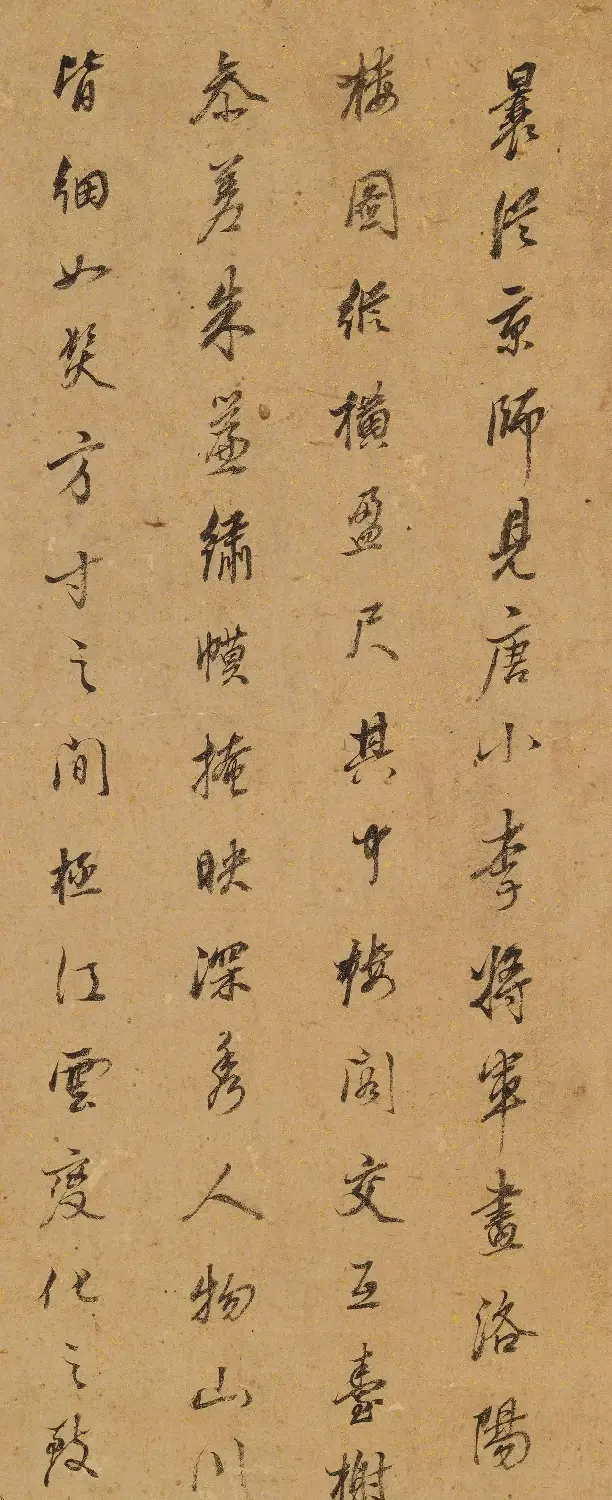 曩從京師見唐小李將軍畫洛陽
樓圖縱橫盈尺其中樓閣交互臺榭
參差朱簾繡幙掩映深秀人物山川
皆細如髪方寸之間極江雲變化之致